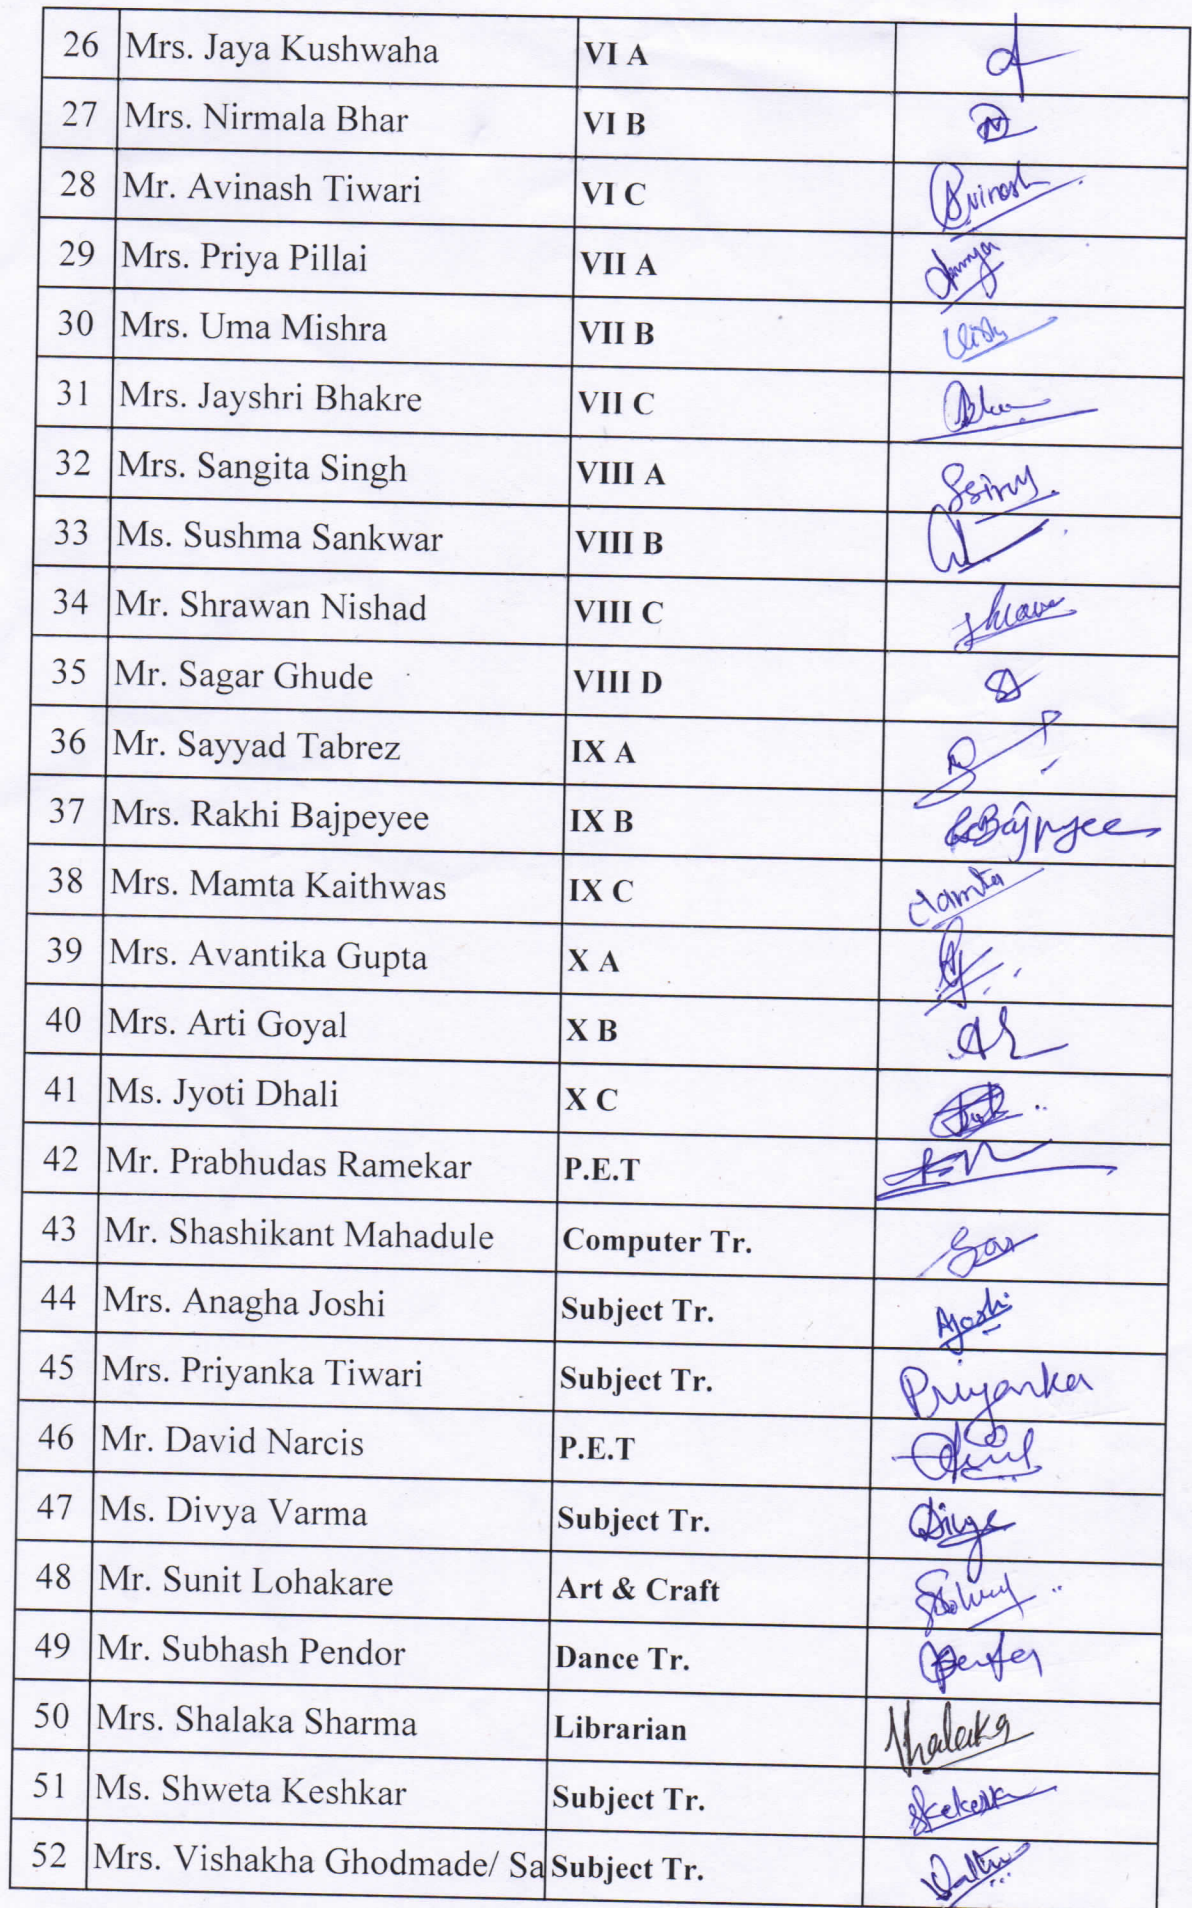 26 Mrs. Jaya Kushwaha VI A
27 Mrs. Nirmala Bhar VI B
28 Mr. Avinash Tiwari VI C Avinash
29 Mrs. Priya Pillai VII A
30 Mrs. Uma Mishra VII B
31 Mrs. Jayshri Bhakre VII C
32 Mrs. Sangita Singh VIII A
33 Ms. Sushma Sankwar VIII B
34 Mr. Shrawan Nishad VIII C
35 Mr. Sagar Ghude VIII D
36 Mr. Sayyad Tabrez IX A
37 Mrs. Rakhi Bajpeyee IX B
38 Mrs. Mamta Kaithwas IX C
39 Mrs. Avantika Gupta X A
40 Mrs. Arti Goyal X B
41 Ms. Jyoti Dhali X C
42 Mr. Prabhudas Ramekar P.E.T
43 Mr. Shashikant Mahadule Computer Tr.
44 Mrs. Anagha Joshi Subject Tr. AJoshi
45 Mrs. Priyanka Tiwari Subject Tr. Priyanka
46 Mr. David Narcis P.E.T
47 Ms. Divya Varma Subject Tr.
48 Mr. Sunit Lohakare Art & Craft
49 Mr. Subhash Pendor Dance Tr.
50 Mrs. Shalaka Sharma Librarian Shalaka
51 Ms. Shweta Keshkar Subject Tr.
52 Mrs. Vishakha Ghodmade/ Sa Subject Tr.